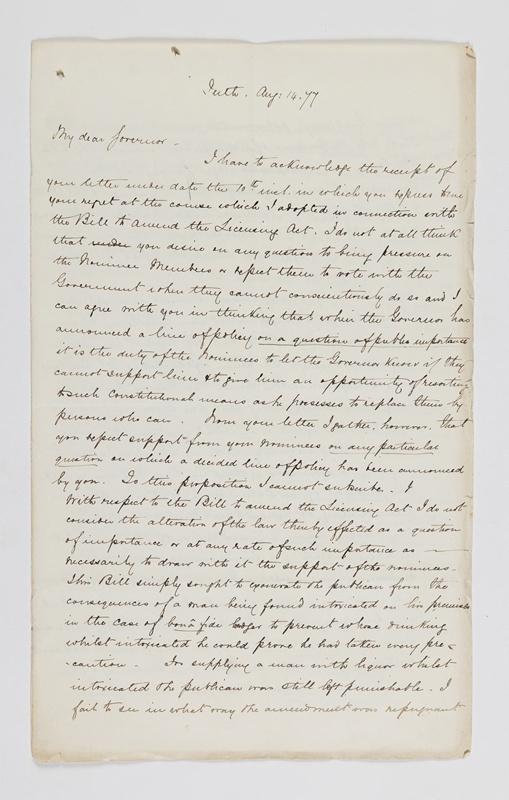 Perth. Aug: 14. 77
My dear Governor -
I have to acknowledge the receipt of
your letter under date the 10th inst. in which you express
your regret at the course which I adopted in connection with
the Bill to amend the Licensing Act. I do not at all think
that you desire on any question to bring pressure on
the Nominee Members or expect them to vote with the
Government when they cannot conscientiously do so and I
can agree with you in thinking that when the Governor has
announced a line of policy on a question of public importance
it is the duty of the Nominees to let the Governor know if they
cannot support him & to give him an opportunity of resorting
to such constitutional means as he possesses to replace them by
persons who can. From your letter I gather, however, that
you expect support from your Nominees on any particular
question on which a decided line of policy has been announced
by you. To this proposition I cannot subscribe. I
With respect to the Bill to amend the Licensing Act I do not
consider the alteration of the law thereby effected as a question
of importance or at any rate of such importance as
necessarily to draw with it the support of the nominees.
This Bill simply sought to exonerate the publican from the
consequences of a man being found intoxicated on his premises
in the case of bonâ fide to prevent whose drinking
whilst intoxicated he could prove he had taken every pre-
-caution. For supplying a man with liquor whilst
intoxicated the publican was still left punishable. I
fail to see in what way the amendment was repugnant